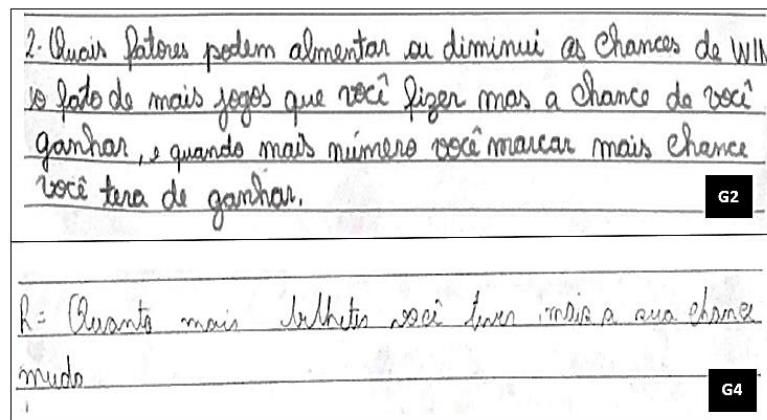 2. Quais fatores podem almentar ou diminui as chances de WIN
o fato de mais jogos que você fizer mas a chance de você
ganhar, e quando mais número você marcar mais chance
você tera de ganhar.
G2
R= Quanto mais bilhetes você tiver mais a sua chance
muda
G4